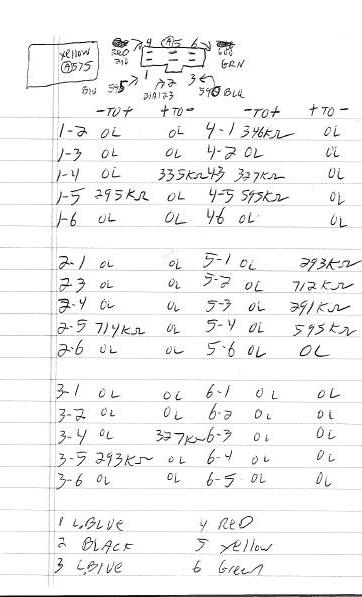 4 (A)5 6
yellow
(A)575
RED
210
GRN
1 2 3
BLU
21A123
BLU
-TO+ +TO- -TO+ +TO-
1-2 OL OL 4-1 346KΩ OL
1-3 OL OL 4-2 OL OL
1-4 OL 335KΩ 43 327KΩ OL
1-5 295KΩ OL 4-5 595KΩ OL
1-6 OL OL 46 OL OL
2-1 OL OL 5-1 OL 293KΩ
2-3 OL OL 5-2 712KΩ
2-4 OL OL 5-3 OL 291KΩ
2-5 714KΩ OL 5-4 OL 595KΩ
2-6 OL OL 5-6 OL OL
3-1 OL OL 6-1 OL OL
3-2 OL OL 6-2 OL OL
3-4 OL 327KΩ 6-3 OL OL
3-5 293KΩ OL 6-4 OL OL
3-6 OL OL 6-5 OL OL
1 L.BLUE 4 RED
2 BLACK 5 yellow
3 L.BLUE 6 Green